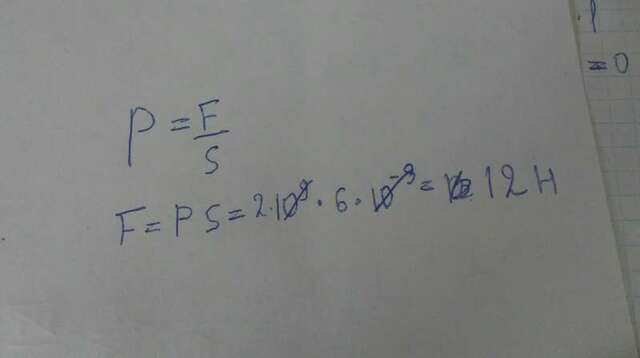 P = F/S
F = P S = 2·10⁹ · 6 · 10⁻⁹ = 12 Н
= 0